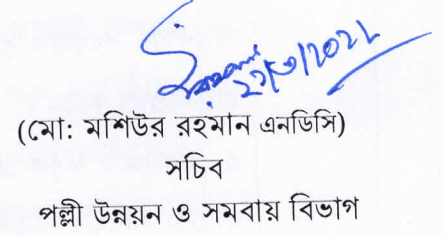 (মো: মশিউর রহমান এনডিসি)
সচিব
পল্লী উন্নয়ন ও সমবায় বিভাগ